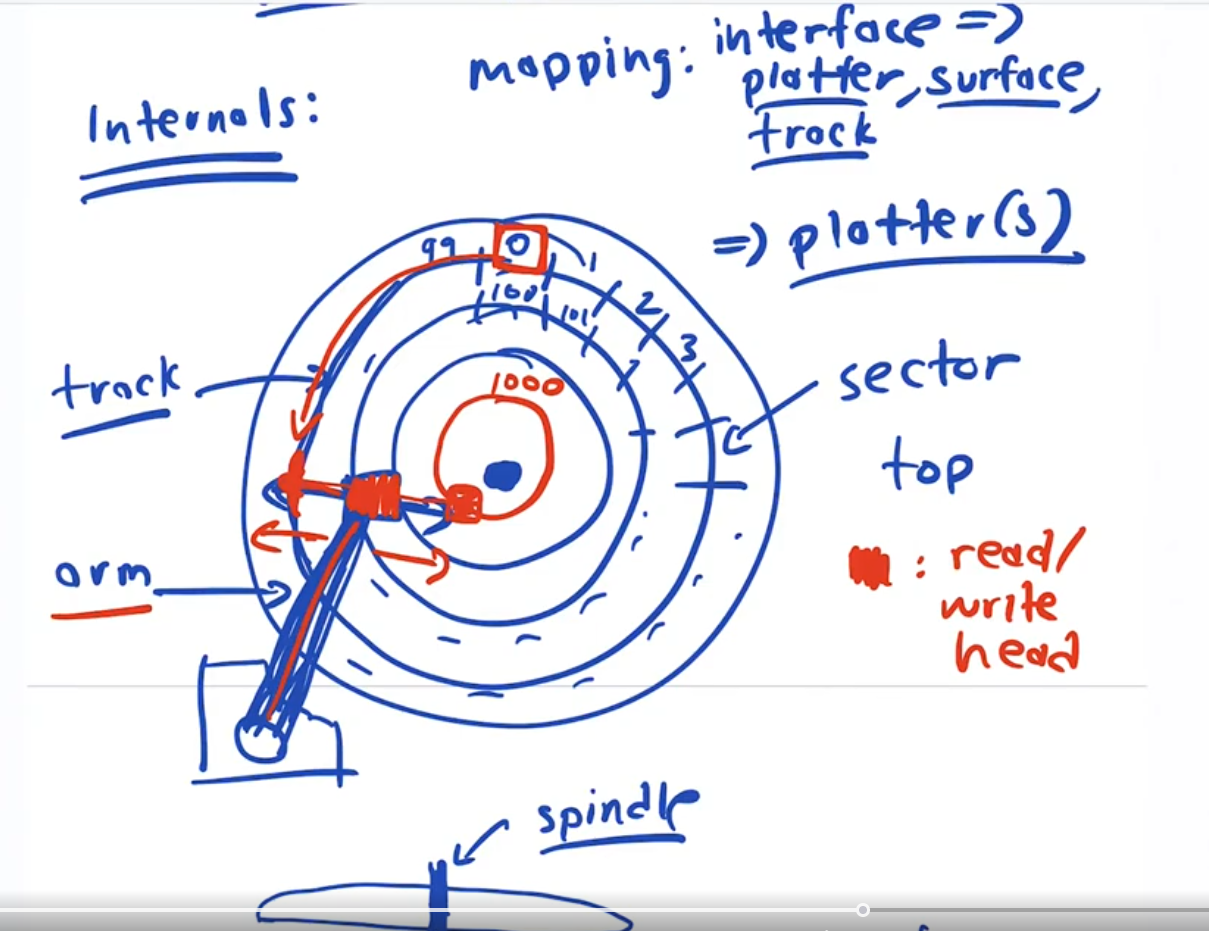 mapping: interface =>
platter, surface,
track
Internals:
=> platter(s)
99 0 1
100 101 2
3
1000
track
sector
top
arm
: read/
write
head
spindle